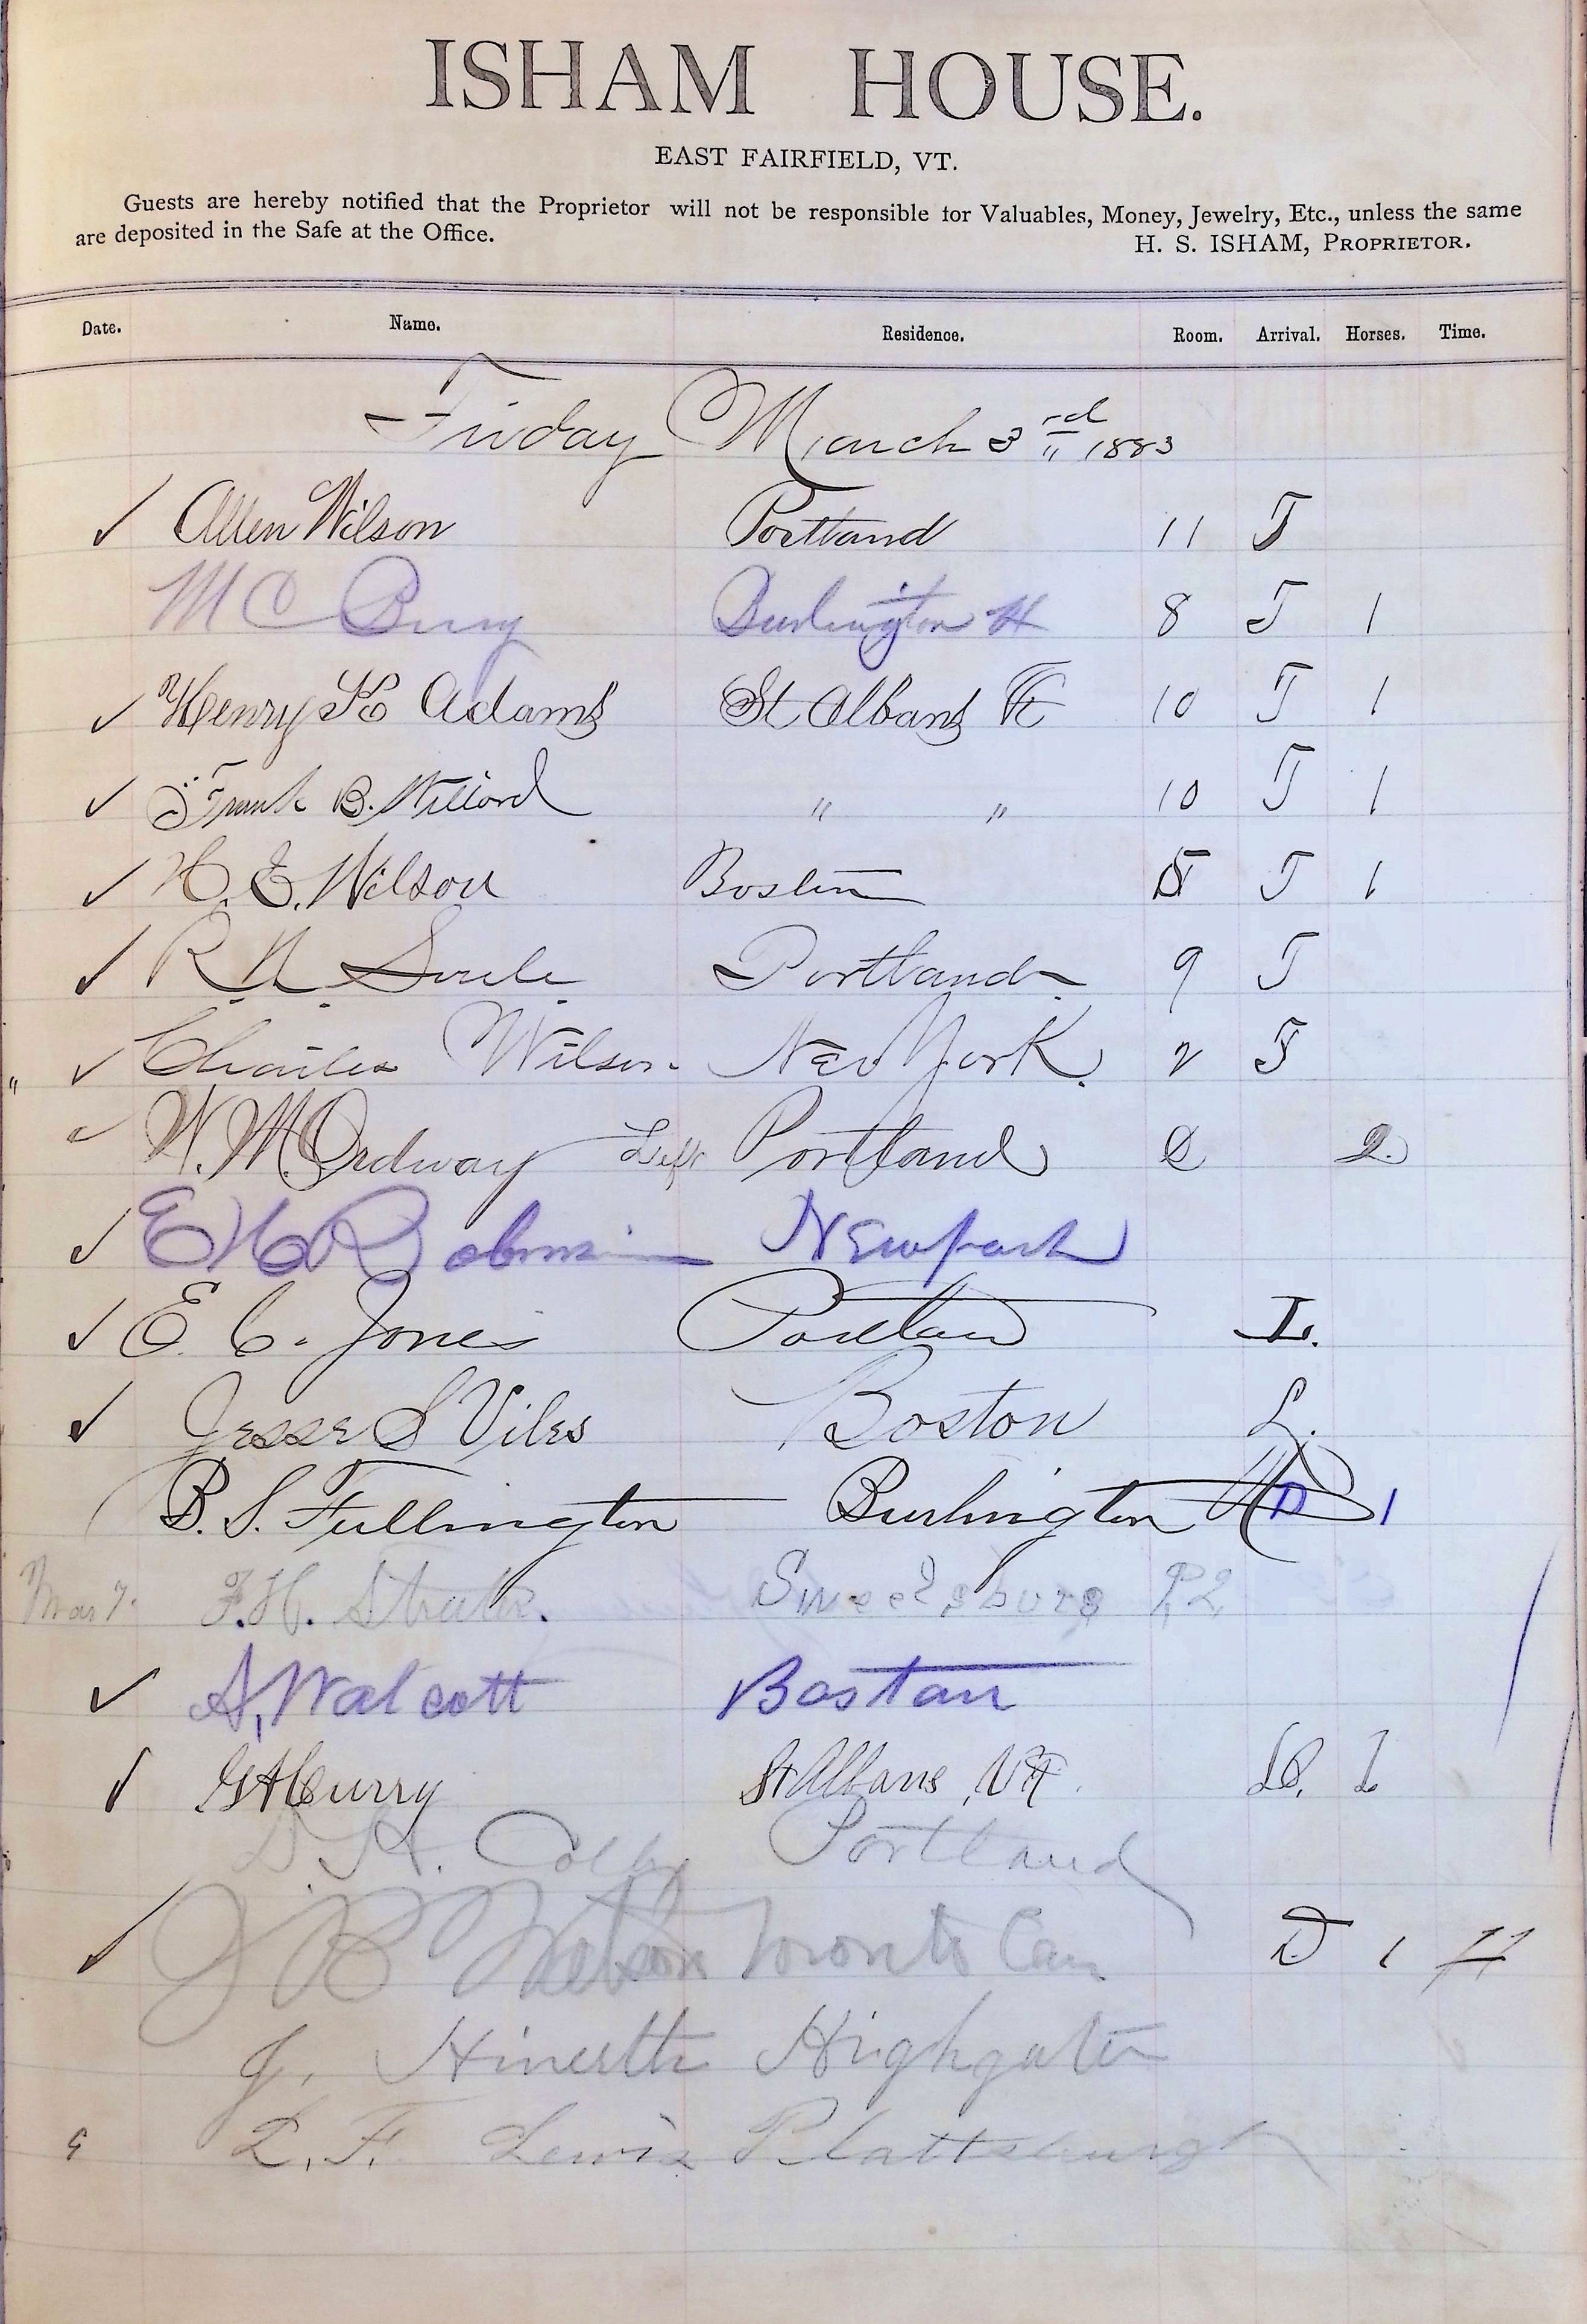 ISHAM HOUSE.
EAST FAIRFIELD, VT.
Guests are hereby notified that the Proprietor will not be responsible for Valuables, Money, Jewelry, Etc., unless the same
are deposited in the Safe at the Office. H. S. ISHAM, PROPRIETOR.
Date. Name. Residence. Room. Arrival. Horses. Time.
Friday March 3rd 1883
✓ Allen Wilson Portland 11 T
M C Burlington Vt 8 T 1
✓ Henry K Adams St Albans Vt 10 T 1
✓ Frank B. Willard " " 10 T 1
✓ H. E. Wilson Boston T 1
✓ R. N. Soule Portland. 9 T
" ✓ Charles Wilson New York. 2 T
✓ W. M. Ordway Left Portland 2
✓ E H Robinson Newport
✓ E. C. Jones Portland
✓ Jesse S Viles Boston L.
B. S. Fullington Burlington Vt D 1
Mar 7. F. H. Sweetsburg P. 2
✓ A. Walcott Boston
✓ G H Curry St Albans, Vt. 1
D. A. Colby Portland
✓ J B Watson Toronto Can D 1
J. Highgate
L. F. Lewis Plattsburgh